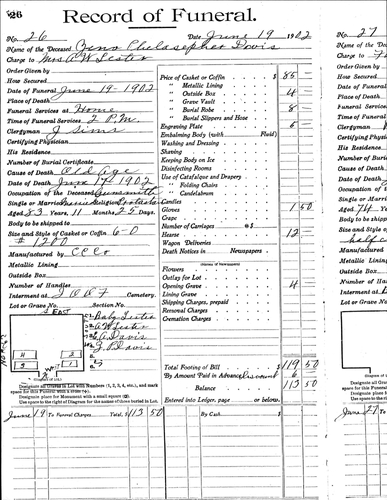 26
Record of Funeral.
No. 26 Date June 19 1902
Name of the Deceased Zeno Davis
Charge to Mrs A W Lester
Order Given by
How Secured
Date of Funeral June 19-1902
Place of Death
Funeral Services at Home
Time of Funeral Services 2 P.M.
Clergyman J Sims
Certifying Physician
His Residence
Number of Burial Certificate
Cause of Death Old Age
Date of Death June 17 1902
Occupation of the Deceased Gunsmith
Single or Married Religion
Aged 83 Years, 11 Months, 25 Days
Body to be shipped to
Size and Style of Casket or Coffin 6-0
# 1200
Manufactured by
Metallic Lining
Outside Box
Number of Handles
Interment at I O O F Cemetery.
Lot or Grave No. Section No.
EAST
Baby Lester
A W Lester
Davis
Davis
4 3
(Diagram of Lot.)
Designate all Graves in Lot with Numbers (1, 2, 3, 4, etc.), and mark
Designate place for Monument with a small square
Use space to the right of Diagram for the names of those buried in Lot.
Price of Casket or Coffin $ 85 —
" Metallic Lining
" Outside Box 4
" Grave Vault
" Burial Robe 8
" Burial Slippers and Hose
Engraving Plate
Embalming Body (with Fluid)
Washing and Dressing
Shaving
Keeping Body on Ice
Disinfecting Rooms
Use of Catafalque and Drapery
" Folding Chairs
" Candelabrum
Candles
Gloves 1 50
Crape
Number of Carriages @ $
Hearse 12
Wagon Deliveries
Death Notices in Newspapers
(Names of Newspapers)
Flowers
Outlay for Lot
Opening Grave 4
Lining Grave
Shipping Charges, prepaid
Personal Charges
Cremation Charges
Total Footing of Bill $ 119 50
By Amount Paid in Advance discount 6
Balance 113 50
Entered into Ledger, page or below.
June 19 To Funeral Charges Total, $ 113 50 By Cash $
No. 27
Name of the Deceased
Charge to
Order Given by
How Secured
Date of Funeral
Place of Death
Funeral Services
Time of Funeral
Clergyman
Certifying Physician
His Residence
Number of Burial
Cause of Death
Date of Death
Occupation of the
Single or Married
Aged 74 Years,
Body to be shipped
Size and Style of
Manufactured by
Metallic Lining
Outside Box
Number of Handles
Interment at
Lot or Grave No.
June 27 To